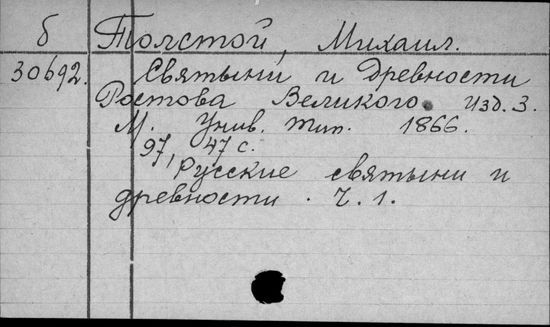 б Толстой, Михаил.
30692. Святыни и Древности
Ростова Великого. Изд. 3.
М. Унив. тип. 1866.
97, 47 с.
Русские святыни и
древности. Ч. 1.